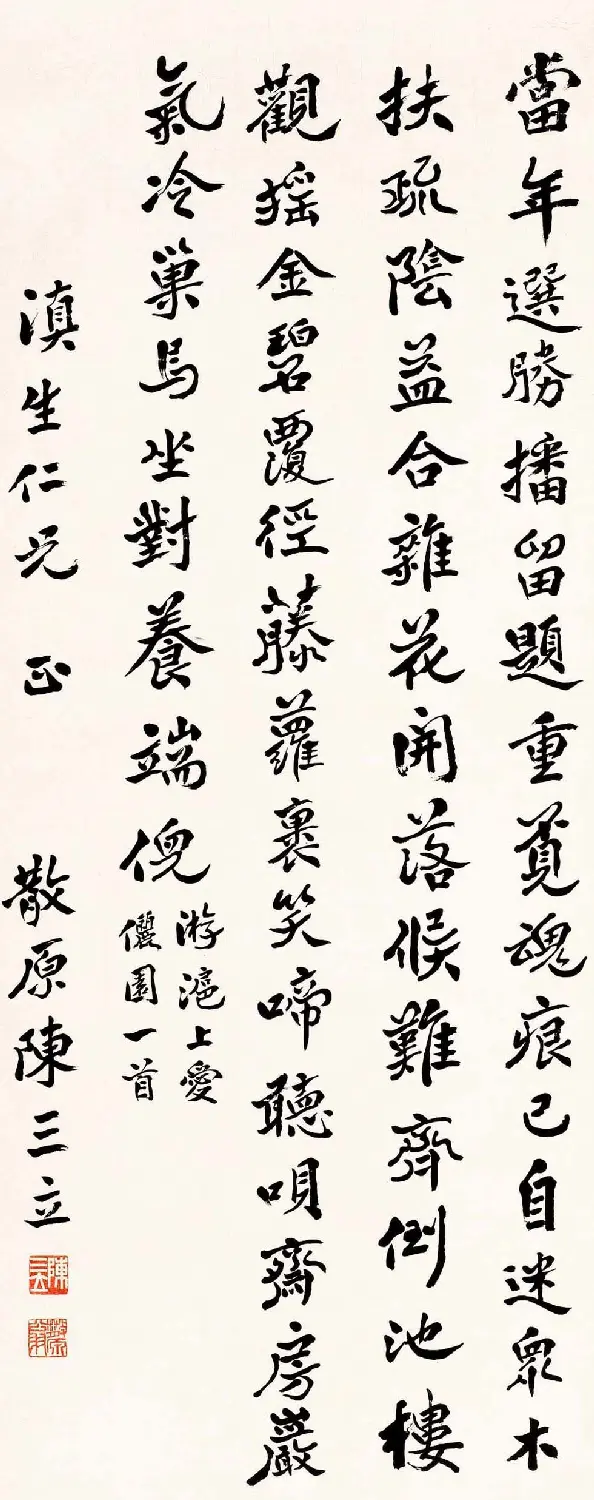 當年選勝播留題重覓魂痕已自迷衆木
扶疏陰益合雜花開落候難齊倒池樓
觀搖金碧覆徑藤蘿裹笑啼聽唄齋房巖
氣冷巢烏坐對養端倪
游滬上愛
儷園一首
滇生仁兄 正 散原陳三立
陳三立